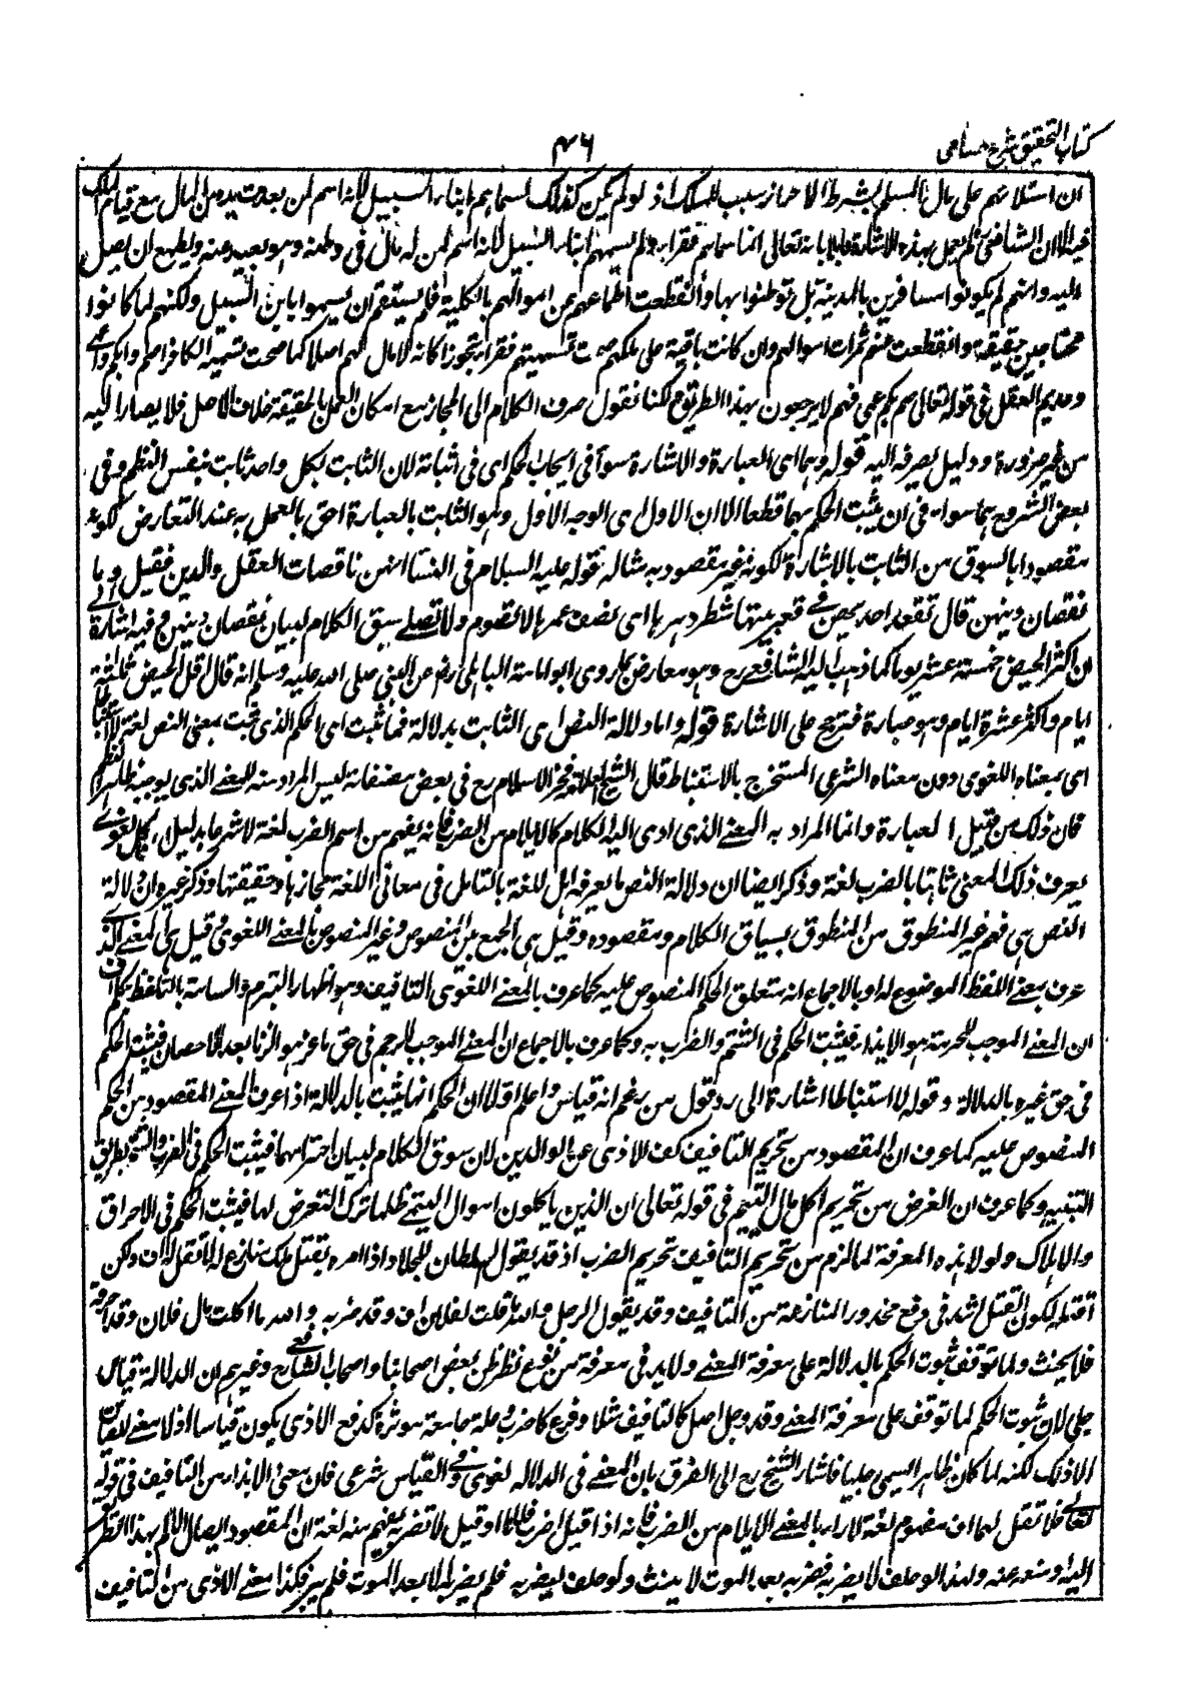 كتاب التحقيق شرح حسامى
٤٦
ان استيلائهم على مال المسلم بشرط الاحراز سبب للملك اذ لو لم يكن كذلك لسماهم ابناء السبيل لانه اسم لمن بعدت يده من المال مع قيام الملك
فيه الا ان الشافعى لم يعمل بهذه الاشارة قائلا بانه تعالى انما سماهم فقراء ولم يسمهم ابناء السبيل لانه اسم لمن له مال فى وطنه وهو بعيد عنه ويطمع ان يصل
اليه وانهم لم يكونوا مسافرين بالمدينة بل توطنوا بها وانقطعت اطماعهم عن اموالهم بالكلية فلم يستقم ان يسموا بابن السبيل ولكنهم لما كانوا
محتاجين حقيقة وانقطعت عنهم ثمرات اموالهم وان كانت باقية على ملكهم صحت تسميتهم فقراء تجوزا كانه لا مال لهم اصلا كما صحت تسمية الكافر اصم وابكم واعمى
وعديم العقل فى قوله تعالى صم بكم عمى فهم لا يرجعون بهذا الطريق لكنا نقول صرف الكلام الى المجاز مع امكان العمل بالحقيقة خلاف الاصل فلا يصار اليه
من غير ضرورة ودليل يصرفه اليه قوله وهما اى العبارة والاشارة سوآء فى ايجاب الحكم اى فى اثباته لان الثابت بكل واحد ثابت بنفس النظم وفى
بعض الشروح هما سواء فى ان يثبت الحكم بهما قطعا الا ان الاول اى الوجه الاول وهو الثابت بالعبارة احق بالعمل به عند التعارض لكونه
مقصودا بالسوق من الثابت بالاشارة لكونه غير مقصود به مثاله قوله عليه السلام فى النساء انهن ناقصات العقل والدين فقيل وما
نقصان دينهن قال تقعد احديهن فى قعر بيتها شطر دهرها اى نصف عمرها لا تصوم ولا تصلى سيق الكلام لبيان نقصان دينهن وفيه اشارة الى
ان اكثر الحيض خمسة عشر يوما كما ذهب اليه الشافعى رح وهو معارض بما روى ابو امامة الباهلى رض عن النبى صلى الله عليه وسلم انه قال اقل الحيض ثلثة
ايام واكثره عشرة ايام وهو عبارة فترجح على الاشارة قوله واما دلالة النص اى الثابت بدلالة فما ثبت اى الحكم الذى ثبت بمعنى النص لغة لا استنباطا
اى بمعناه اللغوى دون معناه الشرعى المستخرج بالاستنباط قال الشيخ العلامة فخر الاسلام رح فى بعض مصنفاته ليس المراد منه المعنى الذى يوجبه ظاهر النظم
فان ذلك من قبيل العبارة وانما المراد به المعنى الذى ادى اليه الكلام كالايلام من الضرب فانه يفهم من اسم الضرب لغة لا شرعا بدليل ان كل لغوى
يعرف ذلك المعنى ثابتا بالضرب لغة وذكر ايضا ان دلالة النص ما يعرفه اهل اللغة بالتامل فى معانى اللغة مجازها وحقيقتها وذكر غيره ان دلالة
النص هى فهم غير المنطوق من المنطوق بسياق الكلام ومقصوده وقيل هى الجمع بين المنصوص وغير المنصوص بالمعنى اللغوى وقيل هى المعنى الذى
عرف بمعنى اللفظ الموضوع له او بالاجماع انه متعلق الحكم المنصوص عليه كما عرف بالمعنى اللغوى التافيف وهو اظهار التبرم والسامة بالتلفظ بكلمة اف
ان المعنى الموجب للحرمة هو الايذاء فيثبت الحكم فى الشتم والضرب به وكما عرف بالاجماع ان المعنى الموجب للرجم فى حق ماعز هو الزنا بعد الاحصان فيثبت الحكم
فى حق غيره بالدلالة وقوله لا استنباطا اشارة الى رد قول من زعم انه قياس واعلم اولا ان الحكم انما يثبت بالدلالة اذا عرف المعنى المقصود من الحكم
المنصوص عليه كما عرف ان المقصود من تحريم التافيف كف الاذى عن الوالدين لان سوق الكلام لبيان احترامهما فيثبت الحكم فى الضرب والشتم بطريق
التنبيه وكما عرف ان الغرض من تحريم اكل مال اليتيم فى قوله تعالى ان الذين ياكلون اموال اليتمى ظلما ترك التعرض لها فيثبت الحكم فى الاحراق
والاهلاك ولولا هذه المعرفة لما لزم من تحريم التافيف تحريم الضرب اذ قد يقول السلطان للجلاد اذا امره بقتل ملك نازعه لا تقل له اف ولكن
اقتله لكون القتل اشد فى دفع محذور المنازعة من التافيف وقد يقول الرجل والله ما قلت لفلان اف وقد ضربه والله ما اكلت مال فلان وقد احرقه
فلا يحنث ولما توقف ثبوت الحكم بالدلالة على معرفة المعنى ولا بد فى معرفته من نوع نظر ظن بعض اصحابنا واصحاب الشافعى وغيرهم ان الدلالة قياس
جلى لان ثبوت الحكم لما توقف على معرفة المعنى وقد وجد اصل كالتافيف مثلا وفرع كالضرب وعلة جامعة مؤثرة كدفع الاذى يكون قياسا اذ لا معنى للقياس
الا ذلك لكنه لما كان ظاهرا سمى جليا فاشار الشيخ رح الى الفرق بان المعنى فى الدلالة لغوى وفى القياس شرعى فان معنى الايذاء من التافيف فى قوله
تعالى فلا تقل لهما اف مفهوم لغة لا رايا كمعنى الايلام من الضرب فانه اذا قيل اضرب فلانا او قيل لا تضربه يفهم منه لغة ان المقصود ايصال الالم بهذا الطريق
اليه او منعه عنه ولهذا لو حلف لا يضربه فضربه بعد الموت لا يحنث ولو حلف ليضربنه فلم يضربه الا بعد الموت فلم يبر فكذا معنى الاذى من التافيف